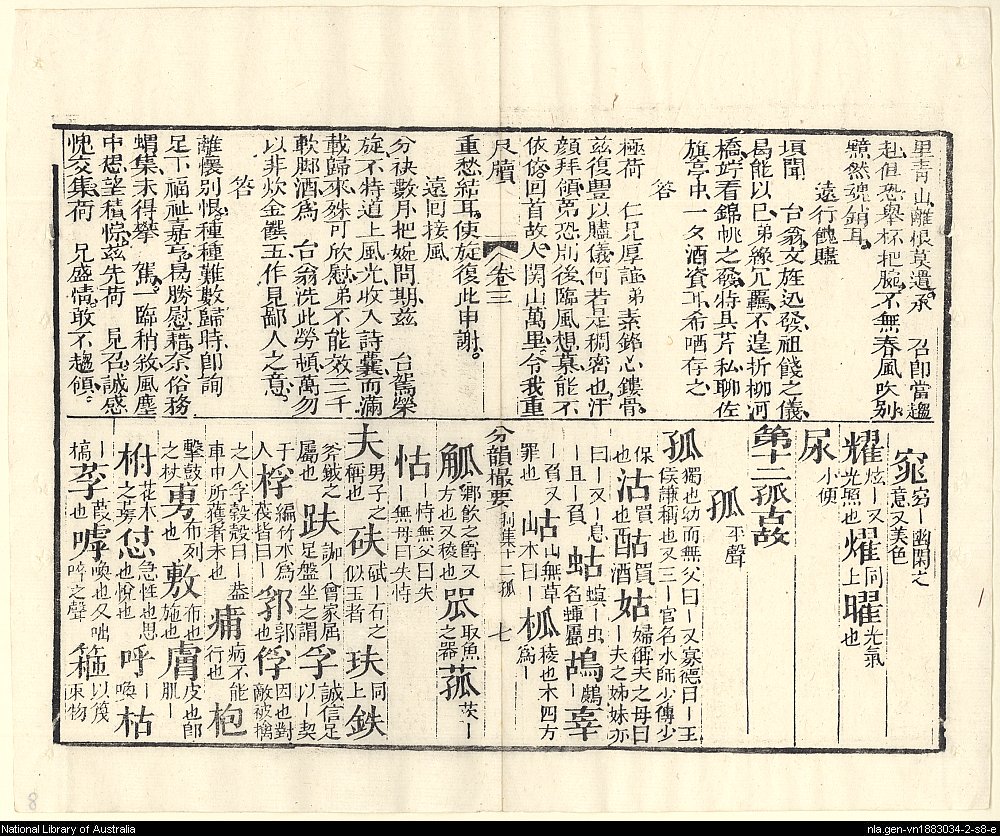 里青山離根莫遣承　召即當趨
赴但恐舉杯把腕不無春風吹別
黯然魂銷耳
遠行餽贐
埙聞　台翁文旌迅發祖餞之儀
曷能以已弟緣冗羈不遑折柳河
橋竚看錦帆之發特具芹私聊佐
旗亭中一夕酒資耳希哂存之
答
極荷　仁兄厚誼弟素銘心鏤骨
茲復豐以贐儀何若是稠密也汗
顏拜領第恐別後臨風想慕能不
依依回首故人關山萬里令我重
尺牘　卷三
重愁結耳使旋復此申謝
遠回接風
分袂數月把晤問期茲　台駕榮
旋不特道上風光收入詩囊而滿
載歸來殊可欣慰弟不能效三千
軟脚酒為　台翁洗此勞頓萬勿
以非炊金饌五作見鄙人之意
答
離懷別恨種種難數歸時卽詢
足下福祉嘉亨曷勝慰藉奈俗務
蝟集未得攀　駕一臨稍敘風塵
中想望積悰茲先荷　見召誠感
愧交集荷　兄盛情敢不趨領
窕窈｜幽閑之意又美色
耀炫｜又光照也燿同上曜光氣也
尿小便
第十二孤古故
孤平聲
孤獨也幼而無父曰｜又寡德曰｜王侯謙稱也又三｜官名水師少傅少保
沽買也酤買酒姑婦稱夫之母曰｜夫之姊妹亦曰｜又｜息
蛄螻｜虫名鴣鷓｜辜｜負又罪也
岵山無草木曰｜柧棱也木四方為｜
分韻撮要　利集十二孤　七
觚鄉飲之爵又方也又稜也罛取魚之器菰茭｜
怙恃也無父曰失｜無母曰失恃
夫男子之稱也砆碔｜石之似玉者玞同上鈇斧鈇之屬也
趺跏｜足盤坐之謂孚誠信足以｜契于人
桴編竹木為｜筏皆曰｜郛郭也俘因也對敵被擒之人
孚穀殼曰｜痡病不能行也枹擊鼓之杖
尃布列也敷布也施也膚皮也卽肌｜
柎花木之萼怤急性也思也悅也呼｜喚枯｜槁
莩葭｜也嘑喚也又咄啐之聲箍以篾束物
8
National Library of Australia
nla.gen-vn1883034-2-s8-e